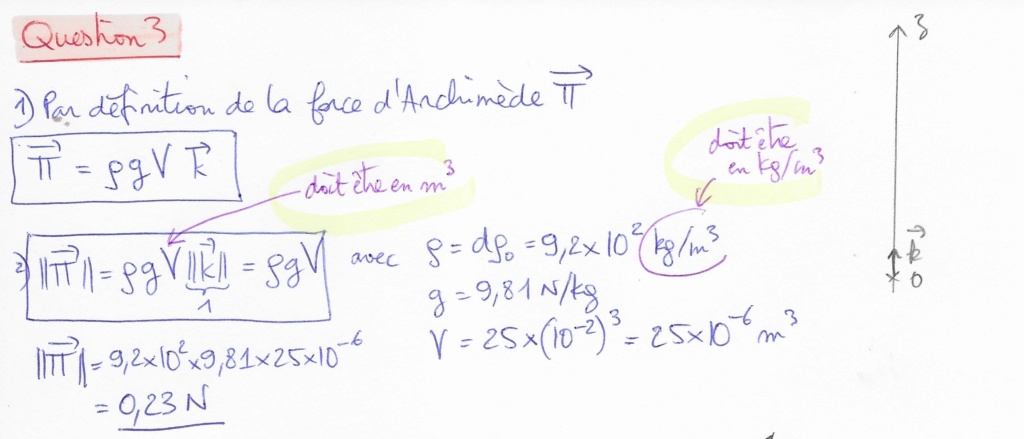 Question 3
z
1) Par définition de la force d'Archimède \vec{Π}
\vec{Π} = ρgV \vec{k}
doit être en m³
doit être
en kg/m³
2) ||\vec{Π}|| = ρgV ||\vec{k}|| = ρgV avec ρ = dρ₀ = 9,2×10² kg/m³
1
g = 9,81 N/kg
\vec{k}
O
||\vec{Π}|| = 9,2×10²×9,81×25×10⁻⁶ V = 25×(10⁻²)³ = 25×10⁻⁶ m³
= 0,23 N